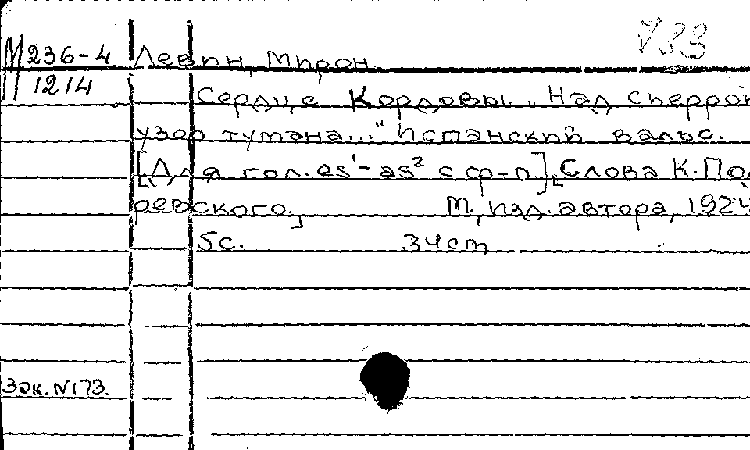 733
М 236-4 Левин, Мирон.
П 1214
Сердце Кордовы. „Над сьеррой
узор тумана..." Испанский вальс.
[Для гол. es¹-as² с ф-п]. Слова К. По
ревского.
М., изд. автора, 1924
5с. 34cm
Зак. N173.